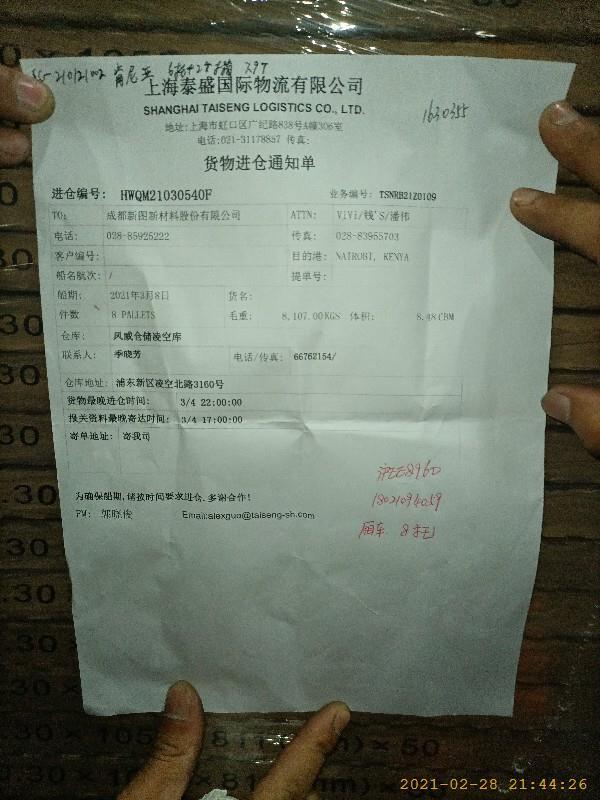 SC-21012102 肯尼亚
上海泰盛国际物流有限公司
SHANGHAI TAISENG LOGISTICS CO., LTD.
1630355
地址:上海市虹口区广纪路838号A幢306室
电话:021-31178857 传真:
货物进仓通知单
进仓编号: HWQM21030540F 业务编号: TSNRB21Z0109
TO: 成都新图新材料股份有限公司 ATTN: ViVi/钱'S/潘伟
电话: 028-85925222 传真: 028-83955703
客户编号: 目的港: NAIROBI, KENYA
船名航次: / 提单号:
船期: 2021年3月8日 货名:
件数 8 PALLETS 毛重: 8,107.00KGS 体积: 8.48CBM
仓库: 风威仓储凌空库
联系人: 季晓芳 电话/传真: 66762154/
仓库地址: 浦东新区凌空北路3160号
货物最晚进仓时间: 3/4 22:00:00
报关资料最晚寄达时间: 3/4 17:00:00
寄单地址: 寄我司
沪EE8960
18021094059
厢车 8托
为确保船期,请按时间要求进仓,多谢合作!
FM: 郭晓俊 Email:alexguo@taiseng-sh.com
2021-02-28 21:44:26